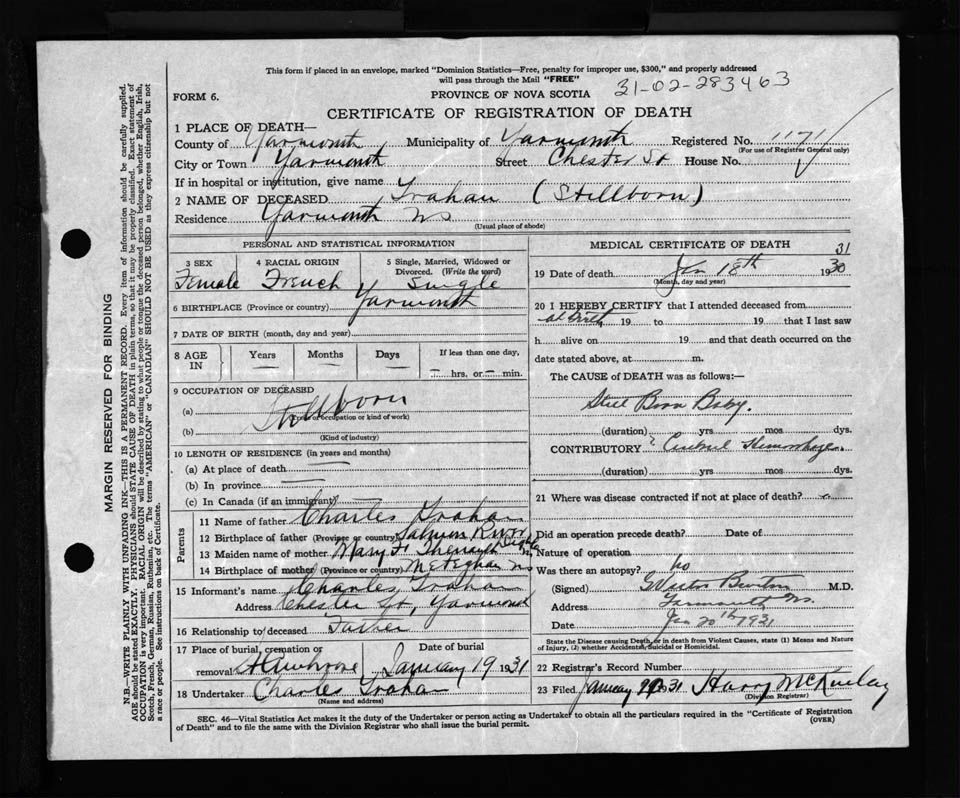 This form if placed in an envelope, marked "Dominion Statistics—Free, penalty for improper use, $300," and properly addressed
will pass through the Mail "FREE"
31-02-283463
FORM 6.
PROVINCE OF NOVA SCOTIA
CERTIFICATE OF REGISTRATION OF DEATH
1 PLACE OF DEATH—
County of Yarmouth Municipality of Yarmouth Registered No. 1171
(For use of Registrar General only)
City or Town Yarmouth Street Chester St House No.
If in hospital or institution, give name
2 NAME OF DECEASED Trahan (Stillborn)
Residence Yarmouth NS
(Usual place of abode)
PERSONAL AND STATISTICAL INFORMATION
3 SEX Female
4 RACIAL ORIGIN French
5 Single, Married, Widowed or Divorced. (Write the word) Single
6 BIRTHPLACE (Province or country) Yarmouth
7 DATE OF BIRTH (month, day and year)
8 AGE IN Years — Months — Days — If less than one day, — hrs. or — min.
9 OCCUPATION OF DECEASED
(a) Stillborn
(Trade, occupation or kind of work)
(b)
(Kind of industry)
10 LENGTH OF RESIDENCE (in years and months)
(a) At place of death —
(b) In province —
(c) In Canada (if an immigrant) —
Parents
11 Name of father Charles Trahan
12 Birthplace of father (Province or country) Salmon River Digby
13 Maiden name of mother Mary
14 Birthplace of mother (Province or country) Meteghan NS
15 Informant's name Charles Trahan
Address Chester St, Yarmouth
16 Relationship to deceased Father
17 Place of burial, cremation or removal St Ambrose Date of burial January 19 1931
18 Undertaker Charles Trahan
(Name and address)
MEDICAL CERTIFICATE OF DEATH
31
19 Date of death Jan 18th 1930
(Month, day and year)
20 I HEREBY CERTIFY that I attended deceased from
at birth 19 to 19 that I last saw
h alive on 19 and that death occurred on the
date stated above, at m.
The CAUSE OF DEATH was as follows:—
Still Born Baby.
(duration) yrs mos dys.
CONTRIBUTORY ? Cerebral Hemorrhage
(duration) yrs mos dys.
21 Where was disease contracted if not at place of death?
Did an operation precede death? Date of
Nature of operation
Was there an autopsy? No
(Signed) M.D.
Address Yarmouth NS.
Date Jan 20th 1931
State the Disease causing Death, or in death from Violent Causes, state (1) Means and Nature
of Injury, (2) whether Accidental, Suicidal or Homicidal.
22 Registrar's Record Number
23 Filed January 1931 Harry McKinlay
(Division Registrar)
SEC. 46—Vital Statistics Act makes it the duty of the Undertaker or person acting as Undertaker to obtain all the particulars required in the "Certificate of Registration
of Death" and to file the same with the Division Registrar who shall issue the burial permit.
(OVER)
MARGIN RESERVED FOR BINDING
N.B.—WRITE PLAINLY WITH UNFADING INK—THIS IS A PERMANENT RECORD. Every item of information should be carefully supplied.
AGE should be stated EXACTLY. PHYSICIANS should STATE CAUSE OF DEATH in plain terms, so that it may be properly classified. Exact statement of
OCCUPATION is very important. RACIAL ORIGIN will be described by stating to what people or tongue the deceased person belonged, whether English, Irish,
Scotch, French, German, Russian, Ruthenian, etc. The terms "AMERICAN" or "CANADIAN" SHOULD NOT BE USED as they express citizenship but not
a race or people. See instructions on back of Certificate.